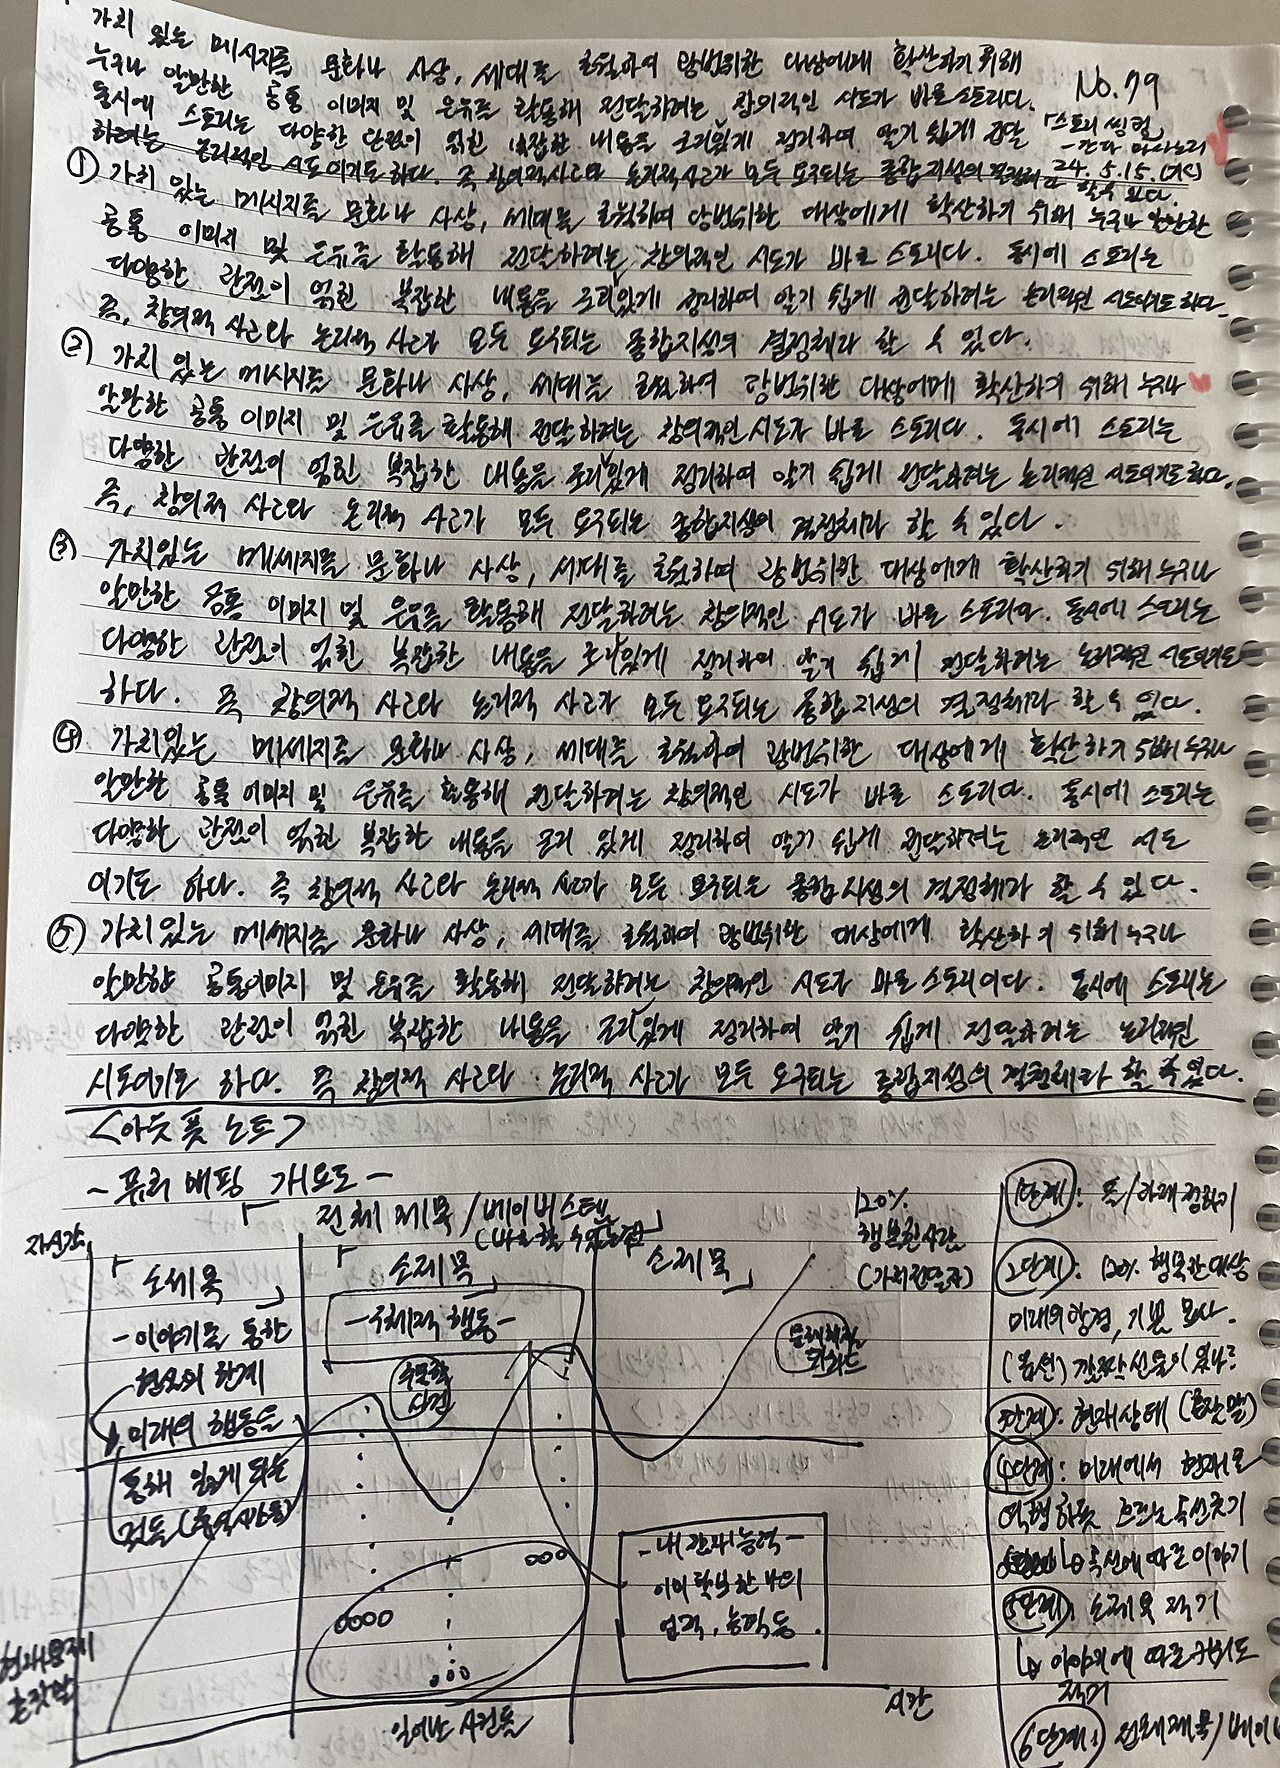 가치 있는 메시지를 문화나 사상, 세대를 초월하여 광범위한 대상에게 확산하기 위해
누구나 알만한 공통 이미지 및 은유를 활용해 전달하려는 창의적인 시도가 바로 스토리다.
No.79
동시에 스토리는 다양한 관점이 얽힌 복잡한 내용을 조리있게 정리하여 알기 쉽게 전달
「스토리 씽킹
- 간다 마사노리
하려는 논리적인 시도이기도 하다. 즉 창의적사고와 논리적사고가 모두 요구되는 종합지성의 결정체라
24. 5. 15. (수)
할 수 있다.
① 가치 있는 메시지를 문화나 사상, 세대를 초월하여 광범위한 대상에게 확산하기 위해 누구나 알만한
공통 이미지 및 은유를 활용해 전달하려는 창의적인 시도가 바로 스토리다. 동시에 스토리는
다양한 관점이 얽힌 복잡한 내용을 조리있게 정리하여 알기 쉽게 전달하려는 논리적인 시도이기도 하다.
즉, 창의적 사고와 논리적 사고가 모두 요구되는 종합지성의 결정체라 할 수 있다.
② 가치 있는 메시지를 문화나 사상, 세대를 초월하여 광범위한 대상에게 확산하기 위해 누구나
알만한 공통 이미지 및 은유를 활용해 전달하려는 창의적인 시도가 바로 스토리다. 동시에 스토리는
다양한 관점이 얽힌 복잡한 내용을 조리있게 정리하여 알기 쉽게 전달하려는 논리적인 시도이기도 하다.
즉, 창의적 사고와 논리적 사고가 모두 요구되는 종합지성의 결정체라 할 수 있다.
③ 가치있는 메세지를 문화나 사상, 세대를 초월하여 광범위한 대상에게 확산하기 위해 누구나
알만한 공통 이미지 및 은유를 활용해 전달하려는 창의적인 시도가 바로 스토리다. 동시에 스토리는
다양한 관점이 얽힌 복잡한 내용을 조리있게 정리하여 알기 쉽게 전달하려는 논리적인 시도이기도
하다. 즉 창의적 사고와 논리적 사고가 모두 요구되는 종합지성의 결정체라 할 수 있다.
④ 가치있는 메세지를 문화나 사상, 세대를 초월하여 광범위한 대상에게 확산하기 위해 누구나
알만한 공통 이미지 및 은유를 활용해 전달하려는 창의적인 시도가 바로 스토리다. 동시에 스토리는
다양한 관점이 얽힌 복잡한 내용을 조리 있게 정리하여 알기 쉽게 전달하려는 논리적인 시도
이기도 하다. 즉 창의적 사고와 논리적 사고가 모두 요구되는 종합지성의 결정체라 할 수 있다.
⑤ 가치있는 메세지를 문화나 사상, 세대를 초월하여 광범위한 대상에게 확산하기 위해 누구나
알만한 공통이미지 및 은유를 활용해 전달하려는 창의적인 시도가 바로 스토리이다. 동시에 스토리는
다양한 관점이 얽힌 복잡한 내용을 조리있게 정리하여 알기 쉽게 전달하려는 논리적인
시도이기도 하다. 즉 창의적 사고와 논리적 사고가 모두 요구되는 종합지성의 결정체라 할 수 있다.
<아웃풋 노트>
- 퓨처 매핑 개요도 -
「 전체 제목 / 베이비스텝 」
(바로 할 수 있는 것)
「소제목」
- 이야기를 통한
현실의 한계
미래의 행동을
통해 잃게 되는
것들
「소제목」
- 구체적 행동 -
소제목」
120%
행복한 시간
(가치전달자)
문제해결
내 잠재능력 -
이미 확보한 나의
업적, 능력 등
시간
일어난 사건들
현재문제
1단계: 틀/과제 정하기
2단계: 120% 행복한 대상
미래의 환경, 기분 묘사.
3단계: 현재상태
4단계: 미래에서 현재로
역행하듯 흐르는 곡선긋기
↳ 곡선에 따른 이야기
5단계: 소제목 적기
↳ 이야기에 따른
적기
6단계: 전체제목/베이비